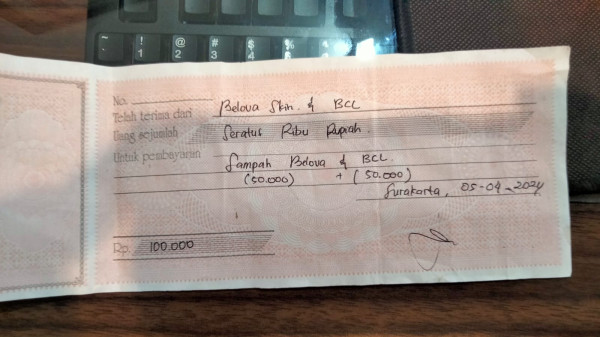 ! @ # $ %
1 2 3 4 5
No.
Telah terima dari Belova Skin & BCL
Uang sejumlah Seratus Ribu Rupiah.
Untuk pembayaran Sampah Belova & BCL.
(50.000) + (50.000)
Surakarta, 05-04-2024
Rp. 100.000